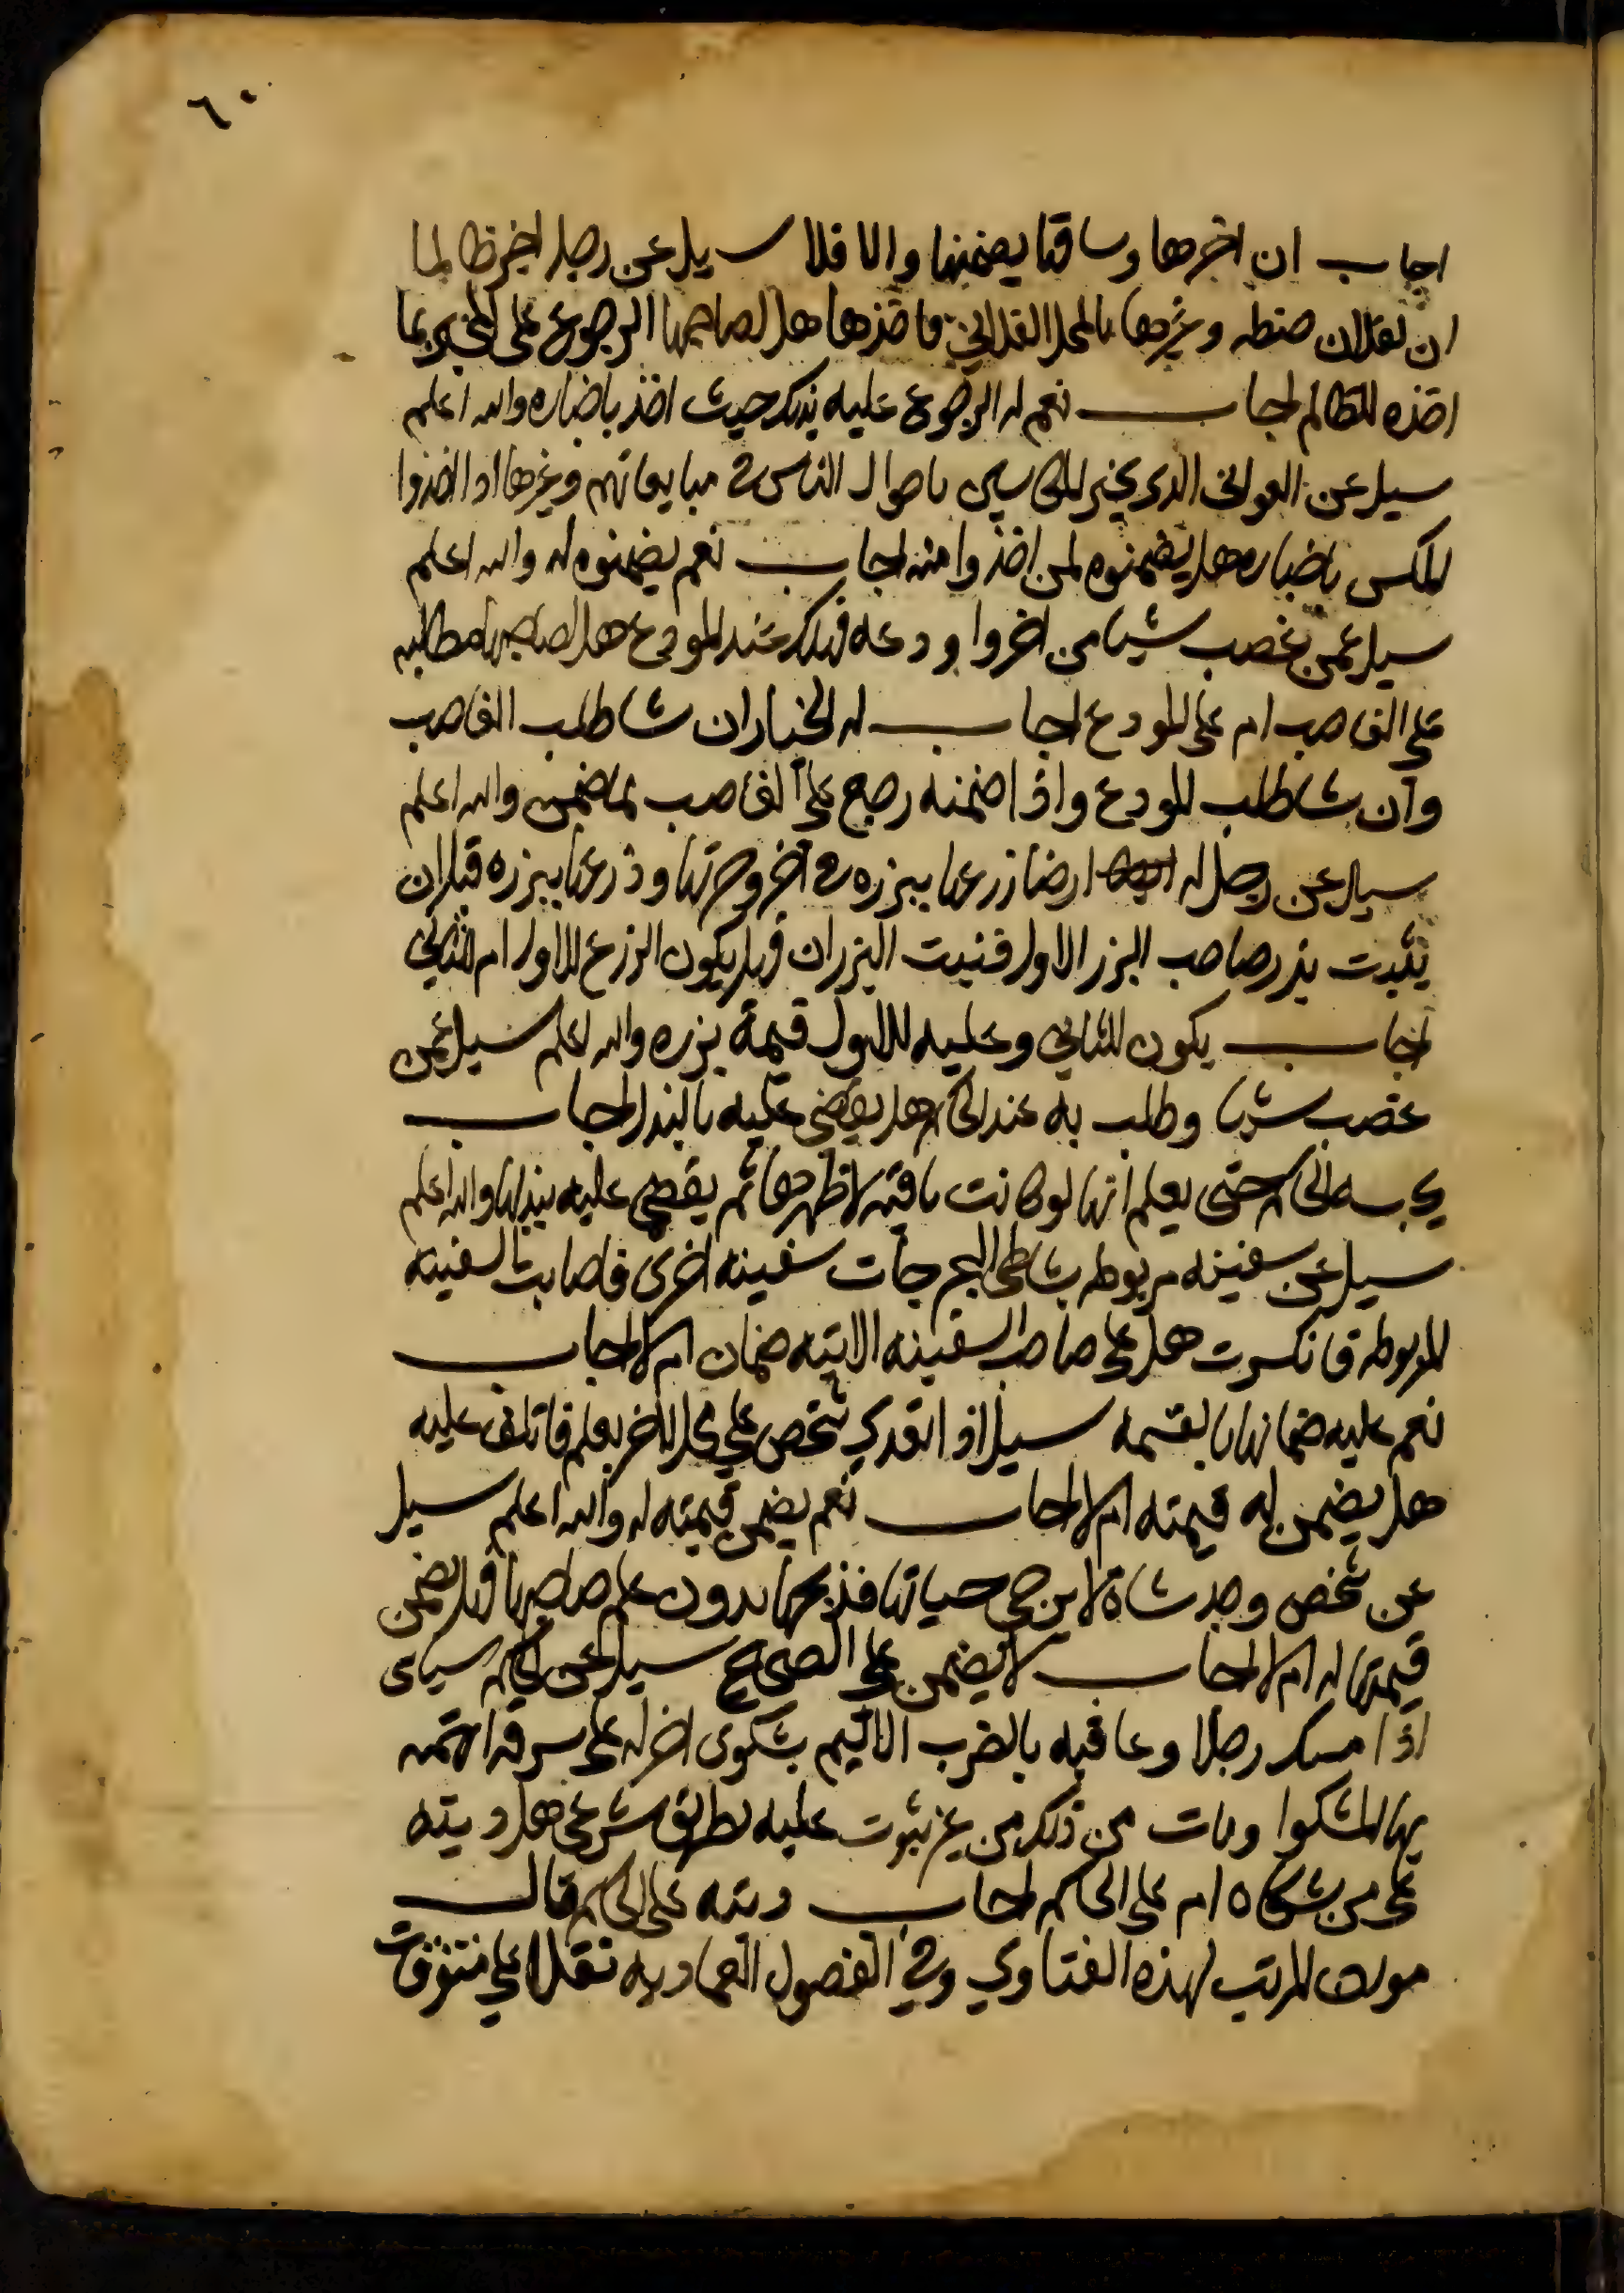 ٦٠
اجاب ان اخرها وساقها يضمنها والا فلا سيل عن رجل اخبر ظالما
ان لفلان حنطه وغيرها بالمحل الفلاني فاخذها هل لصاحبها الرجوع على المخبر بما
اخذه الظالم اجاب نعم له الرجوع عليه بذلك حيث اخذ باخباره والله اعلم
سيل عن العواني الذي يخبر المكاسين باموال الناس في مبايعاتهم وغيرها اذا اخذوا
المكس باخباره هل يضمنوه لمن اخذوا منه اجاب نعم يضمنوه له والله اعلم
سيل عمن غصب شيا من اخر واودعه فهلك عند المودع هل لصاحبها مطالبه
على الغاصب ام على المودع اجاب له الخيار ان شا طلب الغاصب
وان شا طلب المودع واذا ضمنه رجع على الغاصب بما ضمن والله اعلم
سيل عن رجل له ارضا زرعها ببزره في اخر وحرثها وزرعها ببزره قبل ان
ينبت بذر صاحب البزر الاول فنبت البزران فهل يكون الزرع للاول ام للثاني
اجاب يكون للثاني وعليه للاول قيمة بزره والله اعلم سيل عمن
غصب شيا وطلب به عند الحاكم هل يقضي عليه بالبدل اجاب
يحبسه الحاكم حتى يعلم انها لو كانت باقيه لاظهرها ثم يقضي عليه ببدلها والله اعلم
سيل عن سفينه مربوطه بشاطى البحر جات سفينه اخرى فاصابت السفينه
المربوطه فانكسرت هل على صاحب السفينه الاتيه ضمان ام لا اجاب
نعم عليه ضمانها بالقيمه سيل اذا تعدي شخص علي محل لاخر بعلم فاتلف عليه
هل يضمن له قيمته ام لا اجاب نعم يضمن قيمته له والله اعلم سيل
عن شخص وجد شاة لا يرجى حياتها فذبحها بدون علم صاحبها فهل يضمن
قيمتها له ام لا اجاب لا يضمن على الصحيح سيل عن حاكم سياسى
اذا مسك رجلا وعاقبه بالضرب الاليم بشكوى اخر له على سرقه اتهمه
بها المشكوا ومات من ذلك من غير ثبوت عليه بطريق شرعي هل ديته
على من شكاه ام على الحاكم اجاب ديته على الحاكم قال
مولف المرتب لهذه الفتاوي وفي الفصول العماديه نقلا علي متفرقات